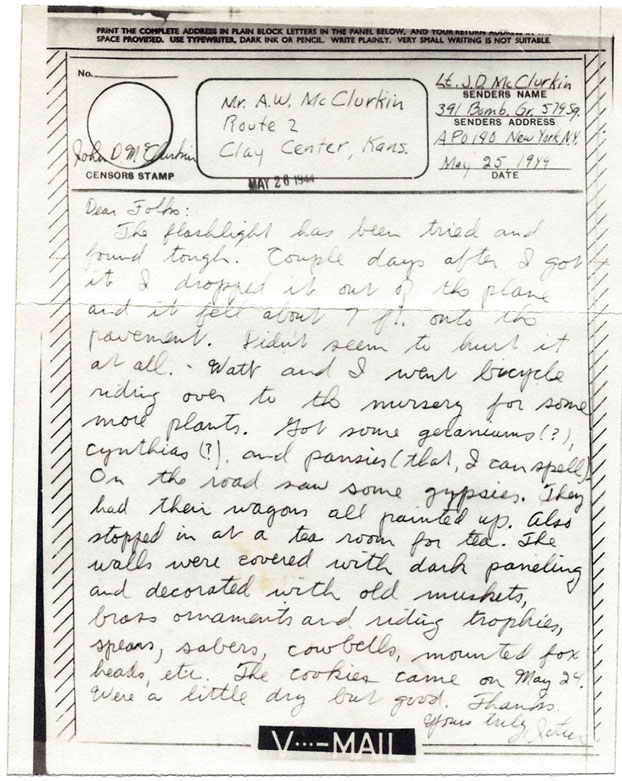 PRINT THE COMPLETE ADDRESS IN PLAIN BLOCK LETTERS IN THE PANEL BELOW, AND YOUR RETURN ADDRESS IN THE
SPACE PROVIDED. USE TYPEWRITER, DARK INK OR PENCIL. WRITE PLAINLY. VERY SMALL WRITING IS NOT SUITABLE.
No.
John D McClurkin
CENSORS STAMP
Mr. A.W. McClurkin
Route 2
Clay Center, Kans.
MAY 26 1944
Lt. J.D. McClurkin
SENDERS NAME
391 Bomb. Gr. 574 Sq.
SENDERS ADDRESS
APO 140 New York N.Y.
May 25, 1944
DATE
Dear Folks:
The flashlight has been tried and
found tough. Couple days after I got
it I dropped it out of the plane
and it fell about 7 ft. onto the
pavement. Didn't seem to hurt it
at all. - Watt and I went bicycle
riding over to the nursery for some
more plants. Got some geraniums (?),
cynthias (?), and pansies (that, I can spell).
On the road saw some gypsies. They
had their wagons all painted up. Also
stopped in at a tea room for tea. The
walls were covered with dark paneling
and decorated with old muskets,
brass ornaments and riding trophies,
spears, sabers, cowbells, mounted fox
heads, etc. The cookies came on May 24.
Were a little dry but good. Thanks
Yours truly
John
V···-MAIL